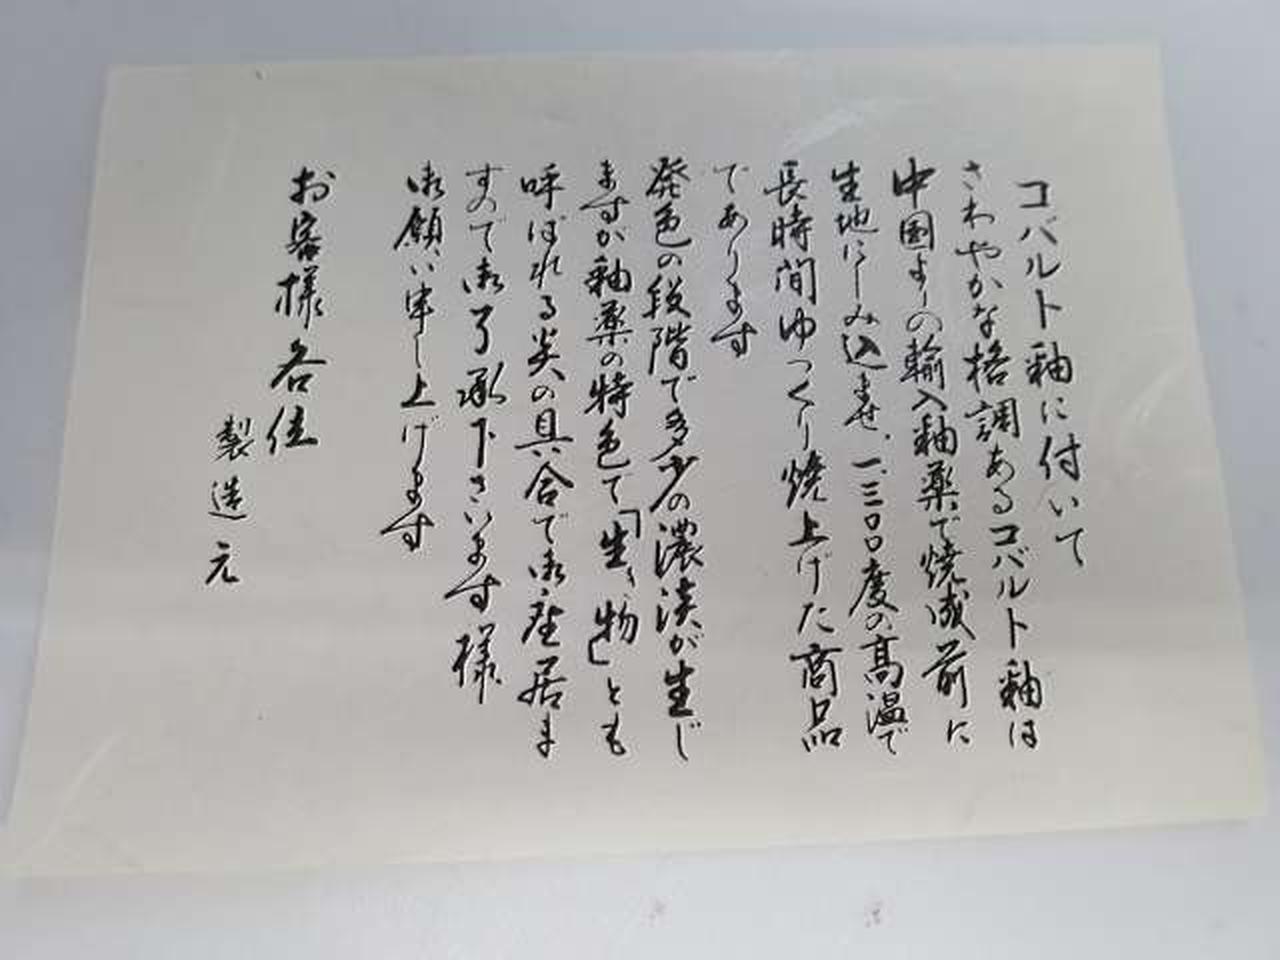 コバルト釉に付いて
さわやかな格調あるコバルト釉は
中国よりの輸入釉薬で焼成前に
生地にしみ込ませ、一、三〇〇度の高温で
長時間ゆっくり焼上げた商品
であります
発色の段階で多少の濃淡が生じ
ますが釉薬の特色で「生き物」とも
呼ばれる炎の具合で御座居ま
すので御了承下さいます様
御願い申し上げます
お客様各位
製造元